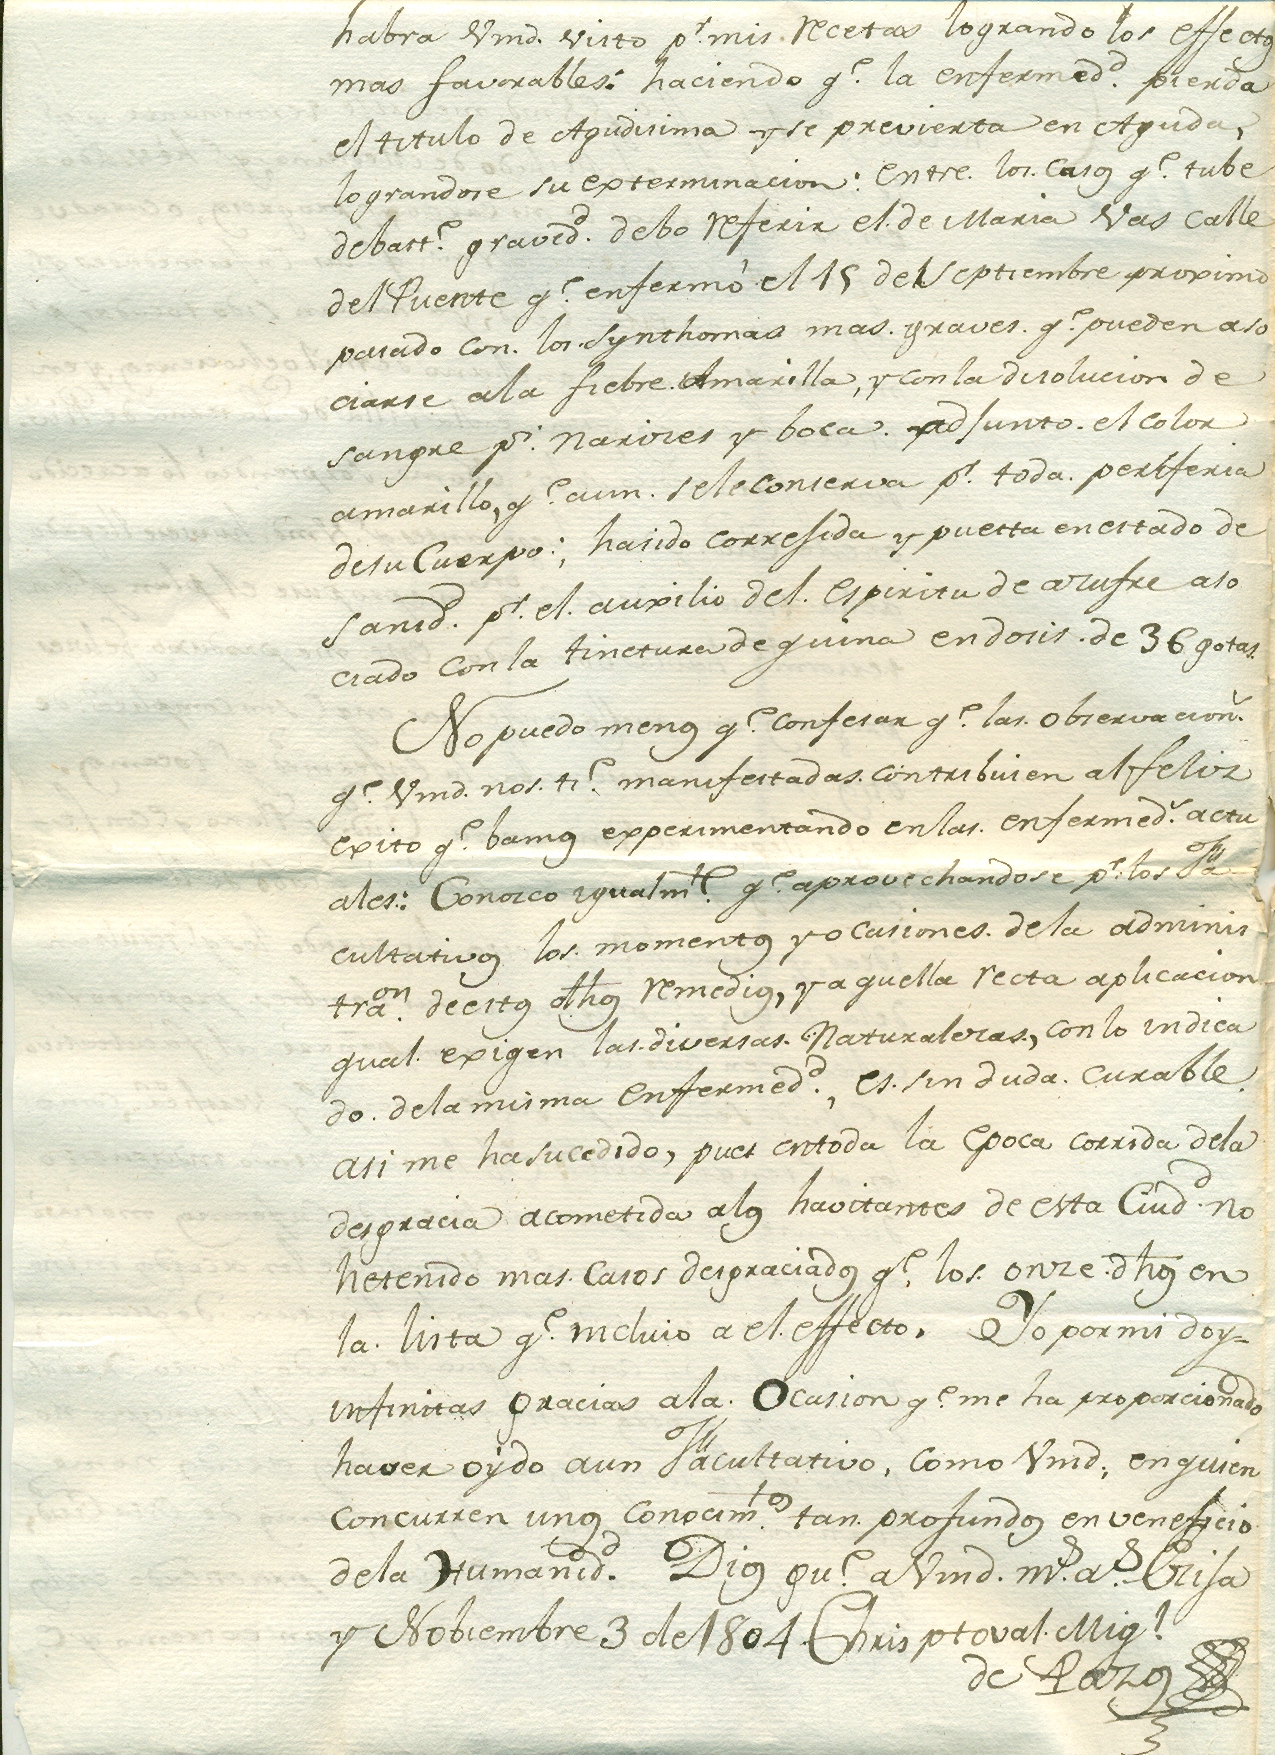 habra Vmd. visto pr. mis recetas logrando los effectos
mas favorables: haciendo qe. la enfermedd. pierda
el titulo de Agudisima y se previerta en Aguda,
lograndose su exterminacion: entre los casos qe. tube
de bastte. gravedd. debo referir el de Maria Vas calle
del Puente qe. enfermó el 15 de Septiembre proximo
pasado con los synthomas mas graves qe. pueden aso
ciarse a la fiebre Amarilla, y con la disolucion de
sangre pr. narizes y boca adjunto el color
amarillo, qe. aun se le conserva pr. toda periferia
de su Cuerpo; ha sido corregida y puesta en estado de
sanidd. pr. el auxilio del Espiritu de azufre aso
ciado con la tinctura de quina en dosis de 36 gotas.
No puedo menos qe. confesar qe. las observacions.
qe. Vmd. nos tie. manifestadas contribuien al feliz
exito qe. bamos experimentando en las enfermeds. actu
ales: Conozco igualmte. qe. aprovechandose pr. los Fa
cultativos los momentos y ocasiones de la adminis
traon. de estos dhos remedios, y aquella recta aplicacion
qual exigen las diversas Naturalezas, con lo indica
do de la misma enfermedd., es sin duda curable.
asi me ha sucedido, pues en toda la epoca corrida de la
desgracia acometida a los havitantes de esta Ciudd. no
he tenido mas casos desgraciados qe. los onze dhos en
la lista qe. incluio a el effecto. Yo por mi doy
infinitas gracias a la Ocasion qe. me ha proporcionado
haver oydo a un Facultativo, como Vmd., en quien
concurren unos conocimtos. tan profundos en veneficio
de la Humanidd. Dios gue. a Vmd. ms. as.
y Nobiembre 3 de 1804. Chrisptoval Migl.
de Pazos